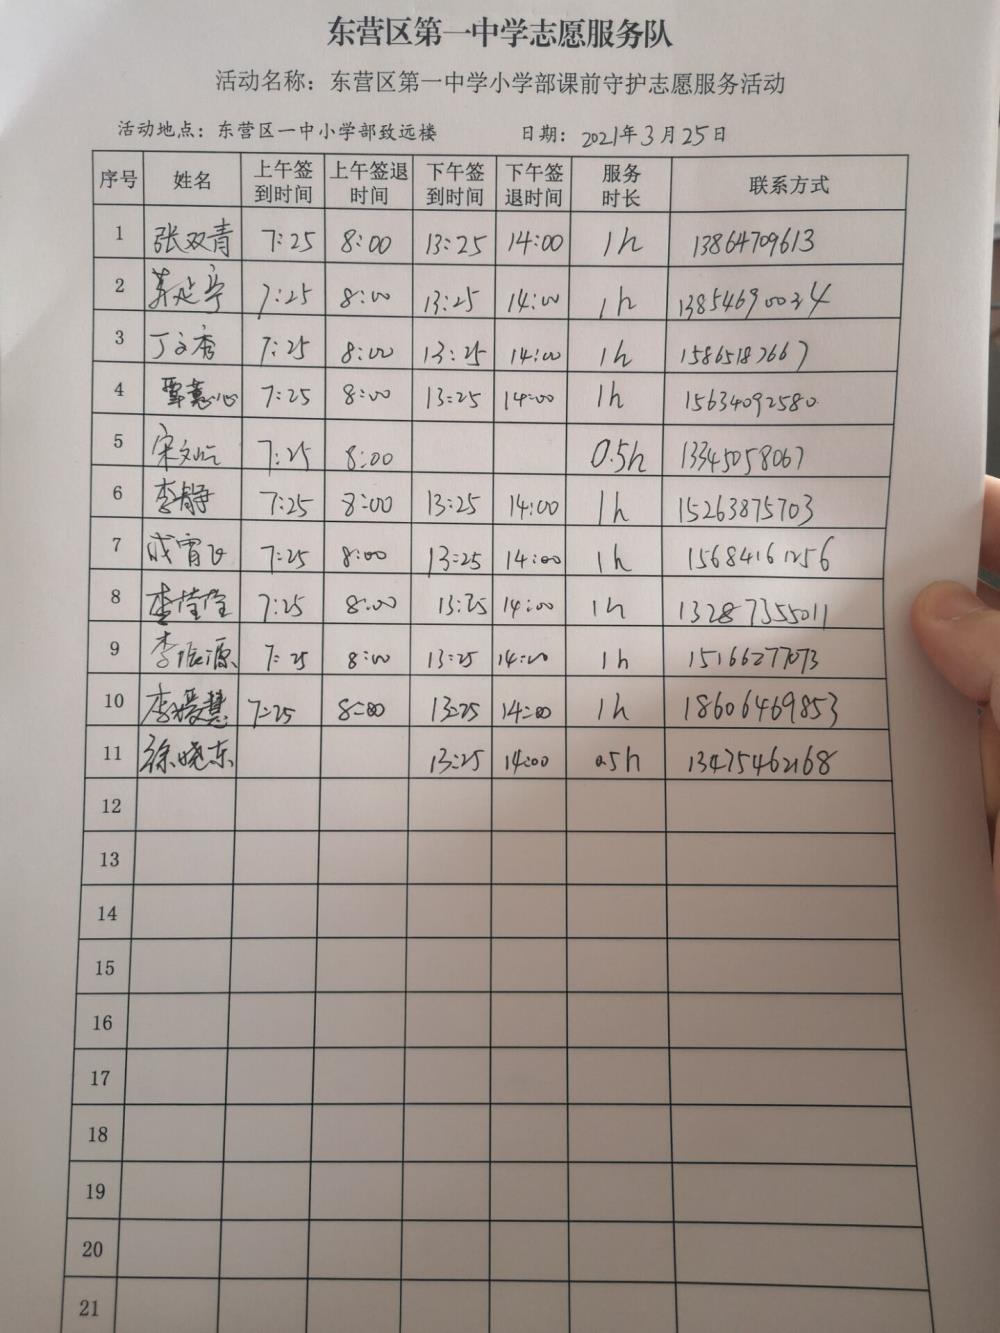 东营区第一中学志愿服务队
活动名称：东营区第一中学小学部课前守护志愿服务活动
活动地点：东营区一中小学部致远楼 日期：2021年3月25日
序号 姓名 上午签到时间 上午签退时间 下午签到时间 下午签退时间 服务时长 联系方式
1 张双青 7:25 8:00 13:25 14:00 1h 13864709613
2 7:25 8:00 13:25 14:00 1h 13854690034
3 丁文秀 7:25 8:00 13:25 14:00 1h 15865182667
4 覃慧心 7:25 8:00 13:25 14:00 1h 15634092580
5 宋文 7:25 8:00 0.5h 13345058067
6 李静 7:25 8:00 13:25 14:00 1h 15263875703
7 成霄飞 7:25 8:00 13:25 14:00 1h 15684161256
8 李莹莹 7:25 8:00 13:25 14:00 1h 13287355011
9 李振源 7:25 8:00 13:25 14:00 1h 15166277073
10 李媛慧 7:25 8:00 13:25 14:00 1h 18606469853
11 徐晓东 13:25 14:00 0.5h 13475462168
12
13
14
15
16
17
18
19
20
21